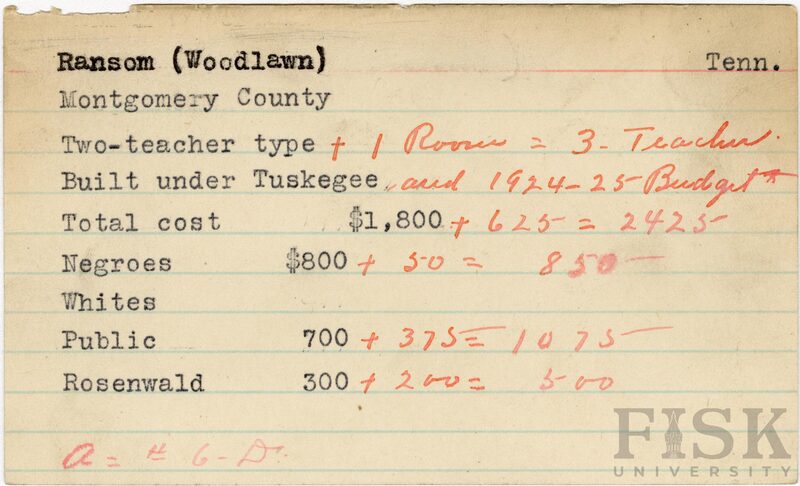 Ransom (Woodlawn) Tenn.
Montgomery County
Two-teacher type + 1 Room = 3-Teacher.
Built under Tuskegee and 1924-25 Budget*
Total cost $1,800 + 625 = 2425
Negroes $800 + 50 = 850
Whites
Public 700 + 375 = 1075
Rosenwald 300 + 200 = 500
a = # 6-D.
FISK
UNIVERSITY